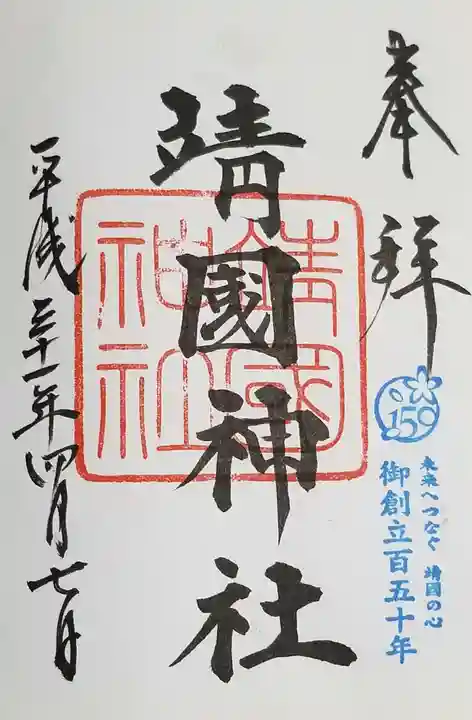 奉拝
150
未来へつなぐ 靖國の心
御創立百五十年
靖國神社
靖國
神社
平成三十一年四月七日